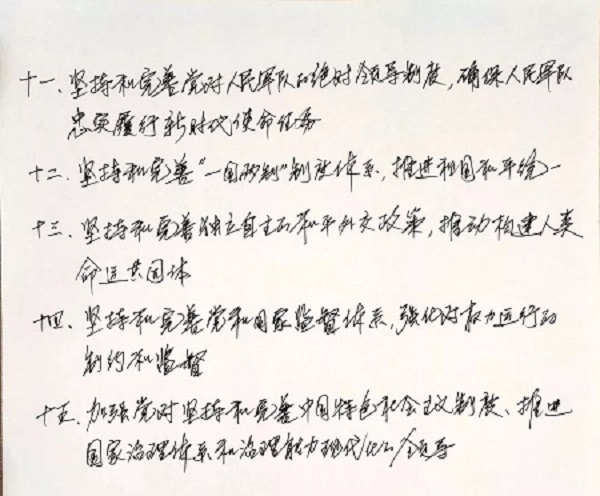 十一、坚持和完善党对人民军队的绝对领导制度，确保人民军队
忠实履行新时代使命任务
十二、坚持和完善“一国两制”制度体系，推进祖国和平统一
十三、坚持和完善独立自主的和平外交政策，推动构建人类
命运共同体
十四、坚持和完善党和国家监督体系，强化对权力运行的
制约和监督
十五、加强党对坚持和完善中国特色社会主义制度、推进
国家治理体系和治理能力现代化的领导